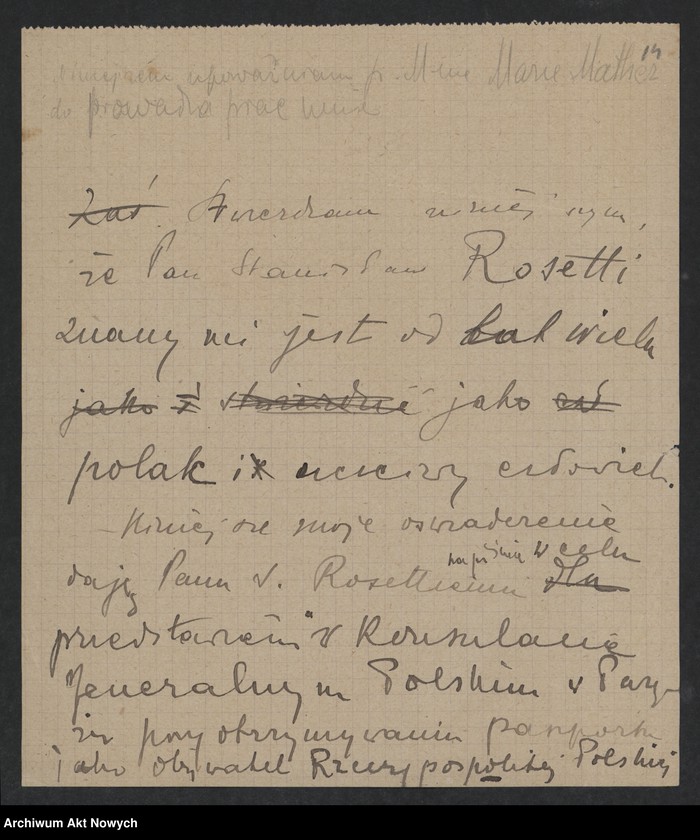 14
upoważniam p. Mme Marie Mather
do prowadza prac
Zaś Stwierdzam niniejszym,
że Pan Stanisław Rosetti
znany mi jest od lat wielu
jako i stwierdzić jako
polak i uczciwy człowiek.
– Niniejsze moje oswiadczenie
na piśmie w celu
daję Panu S. Rosettiemu dla
przedstawienia w Konsulacie
Jeneralnym Polskim w Pary-
żu przy otrzymywaniu pasportu
jako obywatel Rzeczypospolitej Polskiej
Archiwum Akt Nowych